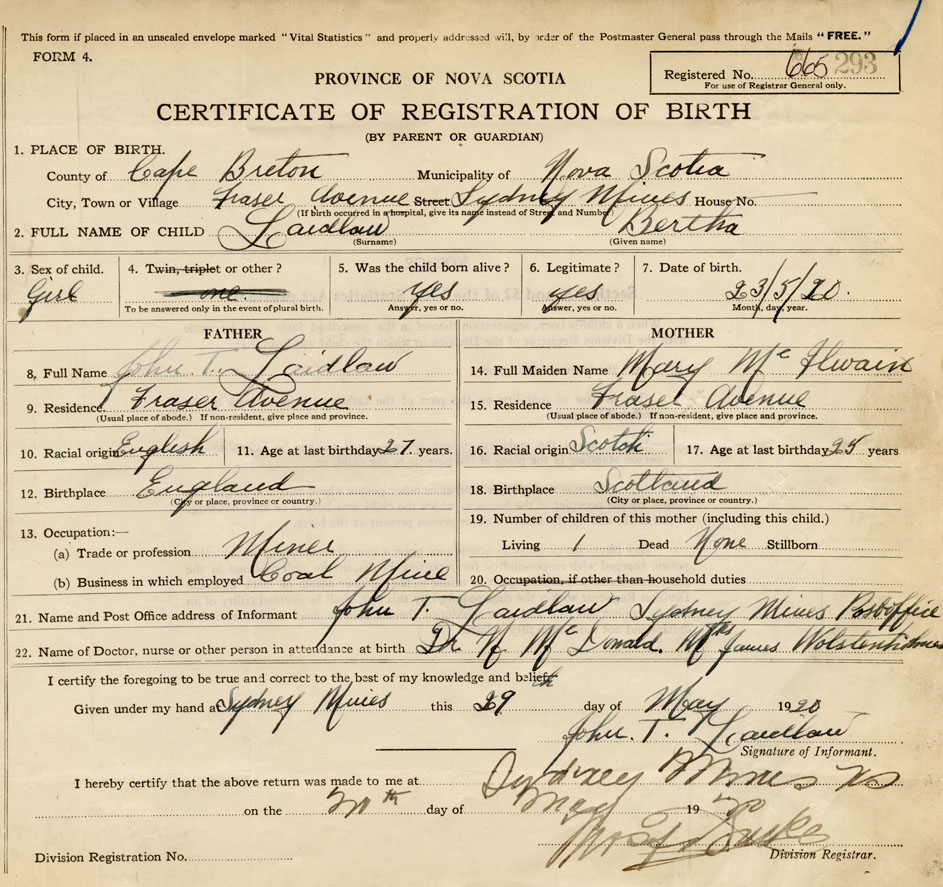 This form if placed in an unsealed envelope marked "Vital Statistics" and properly addressed will, by order of the Postmaster General pass through the Mails "FREE."
FORM 4.
PROVINCE OF NOVA SCOTIA
Registered No. 665 293
For use of Registrar General only.
CERTIFICATE OF REGISTRATION OF BIRTH
(BY PARENT OR GUARDIAN)
1. PLACE OF BIRTH.
County of Cape Breton Municipality of Nova Scotia
City, Town or Village Fraser Avenue Street Sydney Mines House No.
(If birth occurred in a hospital, give its name instead of Street and Number)
2. FULL NAME OF CHILD Laidlaw Bertha
(Surname) (Given name)
3. Sex of child. 4. Twin, triplet or other? 5. Was the child born alive? 6. Legitimate? 7. Date of birth.
Girl one. Yes yes 23/5/20.
To be answered only in the event of plural birth. Answer, yes or no. Answer, yes or no. Month, day, year.
FATHER MOTHER
8. Full Name John T. Laidlaw 14. Full Maiden Name Mary Mc Ilwain
9. Residence Fraser Avenue 15. Residence Fraser Avenue
(Usual place of abode.) If non-resident, give place and province. (Usual place of abode.) If non-resident, give place and province.
10. Racial origin English 11. Age at last birthday 27. years. 16. Racial origin Scotch 17. Age at last birthday 25 years
12. Birthplace England 18. Birthplace Scotland
(City or place, province or country.) (City or place, province or country.)
13. Occupation:— 19. Number of children of this mother (including this child.)
(a) Trade or profession Miner Living 1 Dead None Stillborn
(b) Business in which employed Coal Mine 20. Occupation, if other than household duties
21. Name and Post Office address of Informant John T. Laidlaw Sydney Mines Postoffice
22. Name of Doctor, nurse or other person in attendance at birth Dr Mc Donald. James
I certify the foregoing to be true and correct to the best of my knowledge and belief.
Given under my hand at Sydney Mines this 29 day of May 1920
John. T. Laidlaw
Signature of Informant.
I hereby certify that the above return was made to me at Sydney Mines NS
on the day of May 19
Division Registration No. Division Registrar.